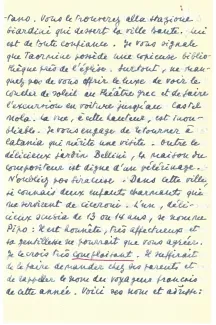 Vous le trouverez à la stazione
Giardini qui dessert la ville haute. Il
est de toute confiance. Je vous signale
que Taormine possède une
bibliothèque près de l'église. Surtout, ne
manquez pas de vous offrir le luxe de voir le
coucher de soleil au théâtre grec et de faire
l'excursion en voiture jusqu'au Castel
Mola. La vue, à cette hauteur, est
inoubliable. Je vous engage de retourner à
Catania qui mérite une visite. Outre le
délicieux jardin Bellini, la maison du
compositeur est digne d'un pèlerinage.
N'oubliez pas Siracusa. Dans cette ville
je connais deux enfants charmants qui
me servirent de ciceroni. L'un,
de 13 ou 14 ans, se nomme
Pipo. Il est honnête, très affectueux et
sa gentillesse ne pourrait que vous agréer.
Je le crois très complaisant. Il suffirait
de le faire demander chez ses parents et
de rappeler le nom des voyageurs français
de cette année. Voici ses nom et adresse: